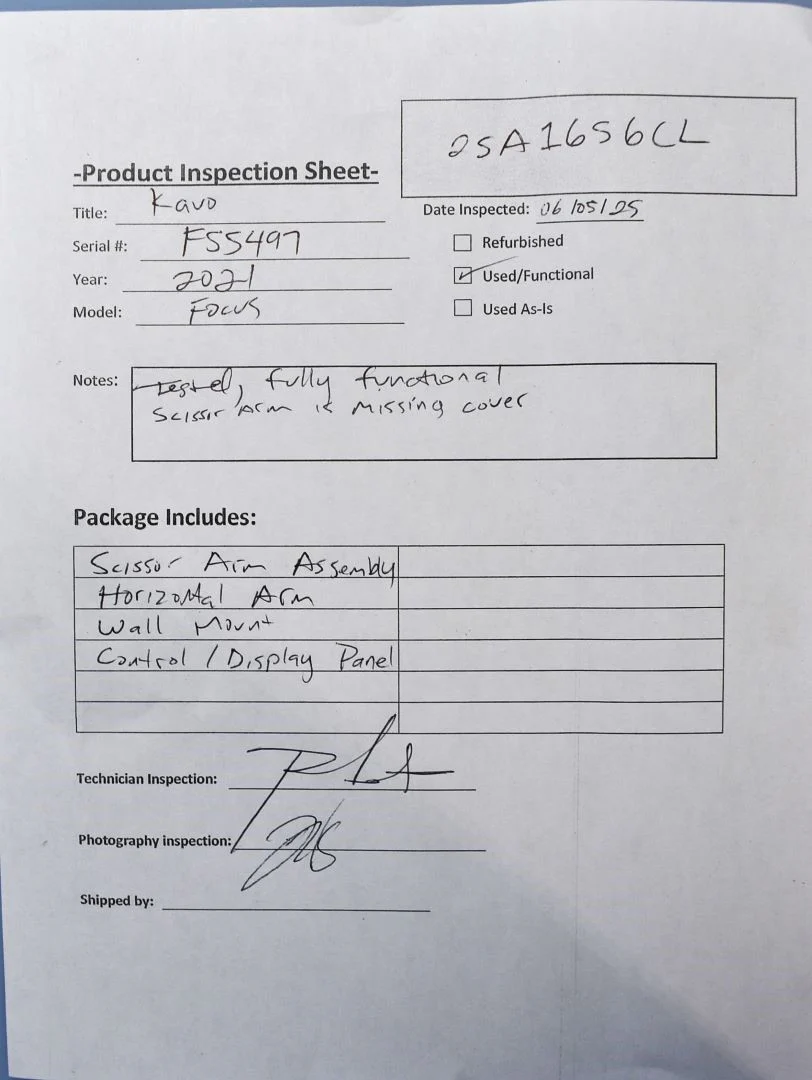 25A1656CL
-Product Inspection Sheet-
Title: Kavo
Date Inspected: 06/05/25
Serial #: FS5497
Refurbished
Year: 2021
Used/Functional
Model: Focus
Used As-Is
Notes: Tested, fully functional
Scissor Arm is missing cover
Package Includes:
Scissor Arm Assembly
Horizontal Arm
Wall Mount
Control / Display Panel
Technician Inspection:
Photography inspection:
Shipped by: